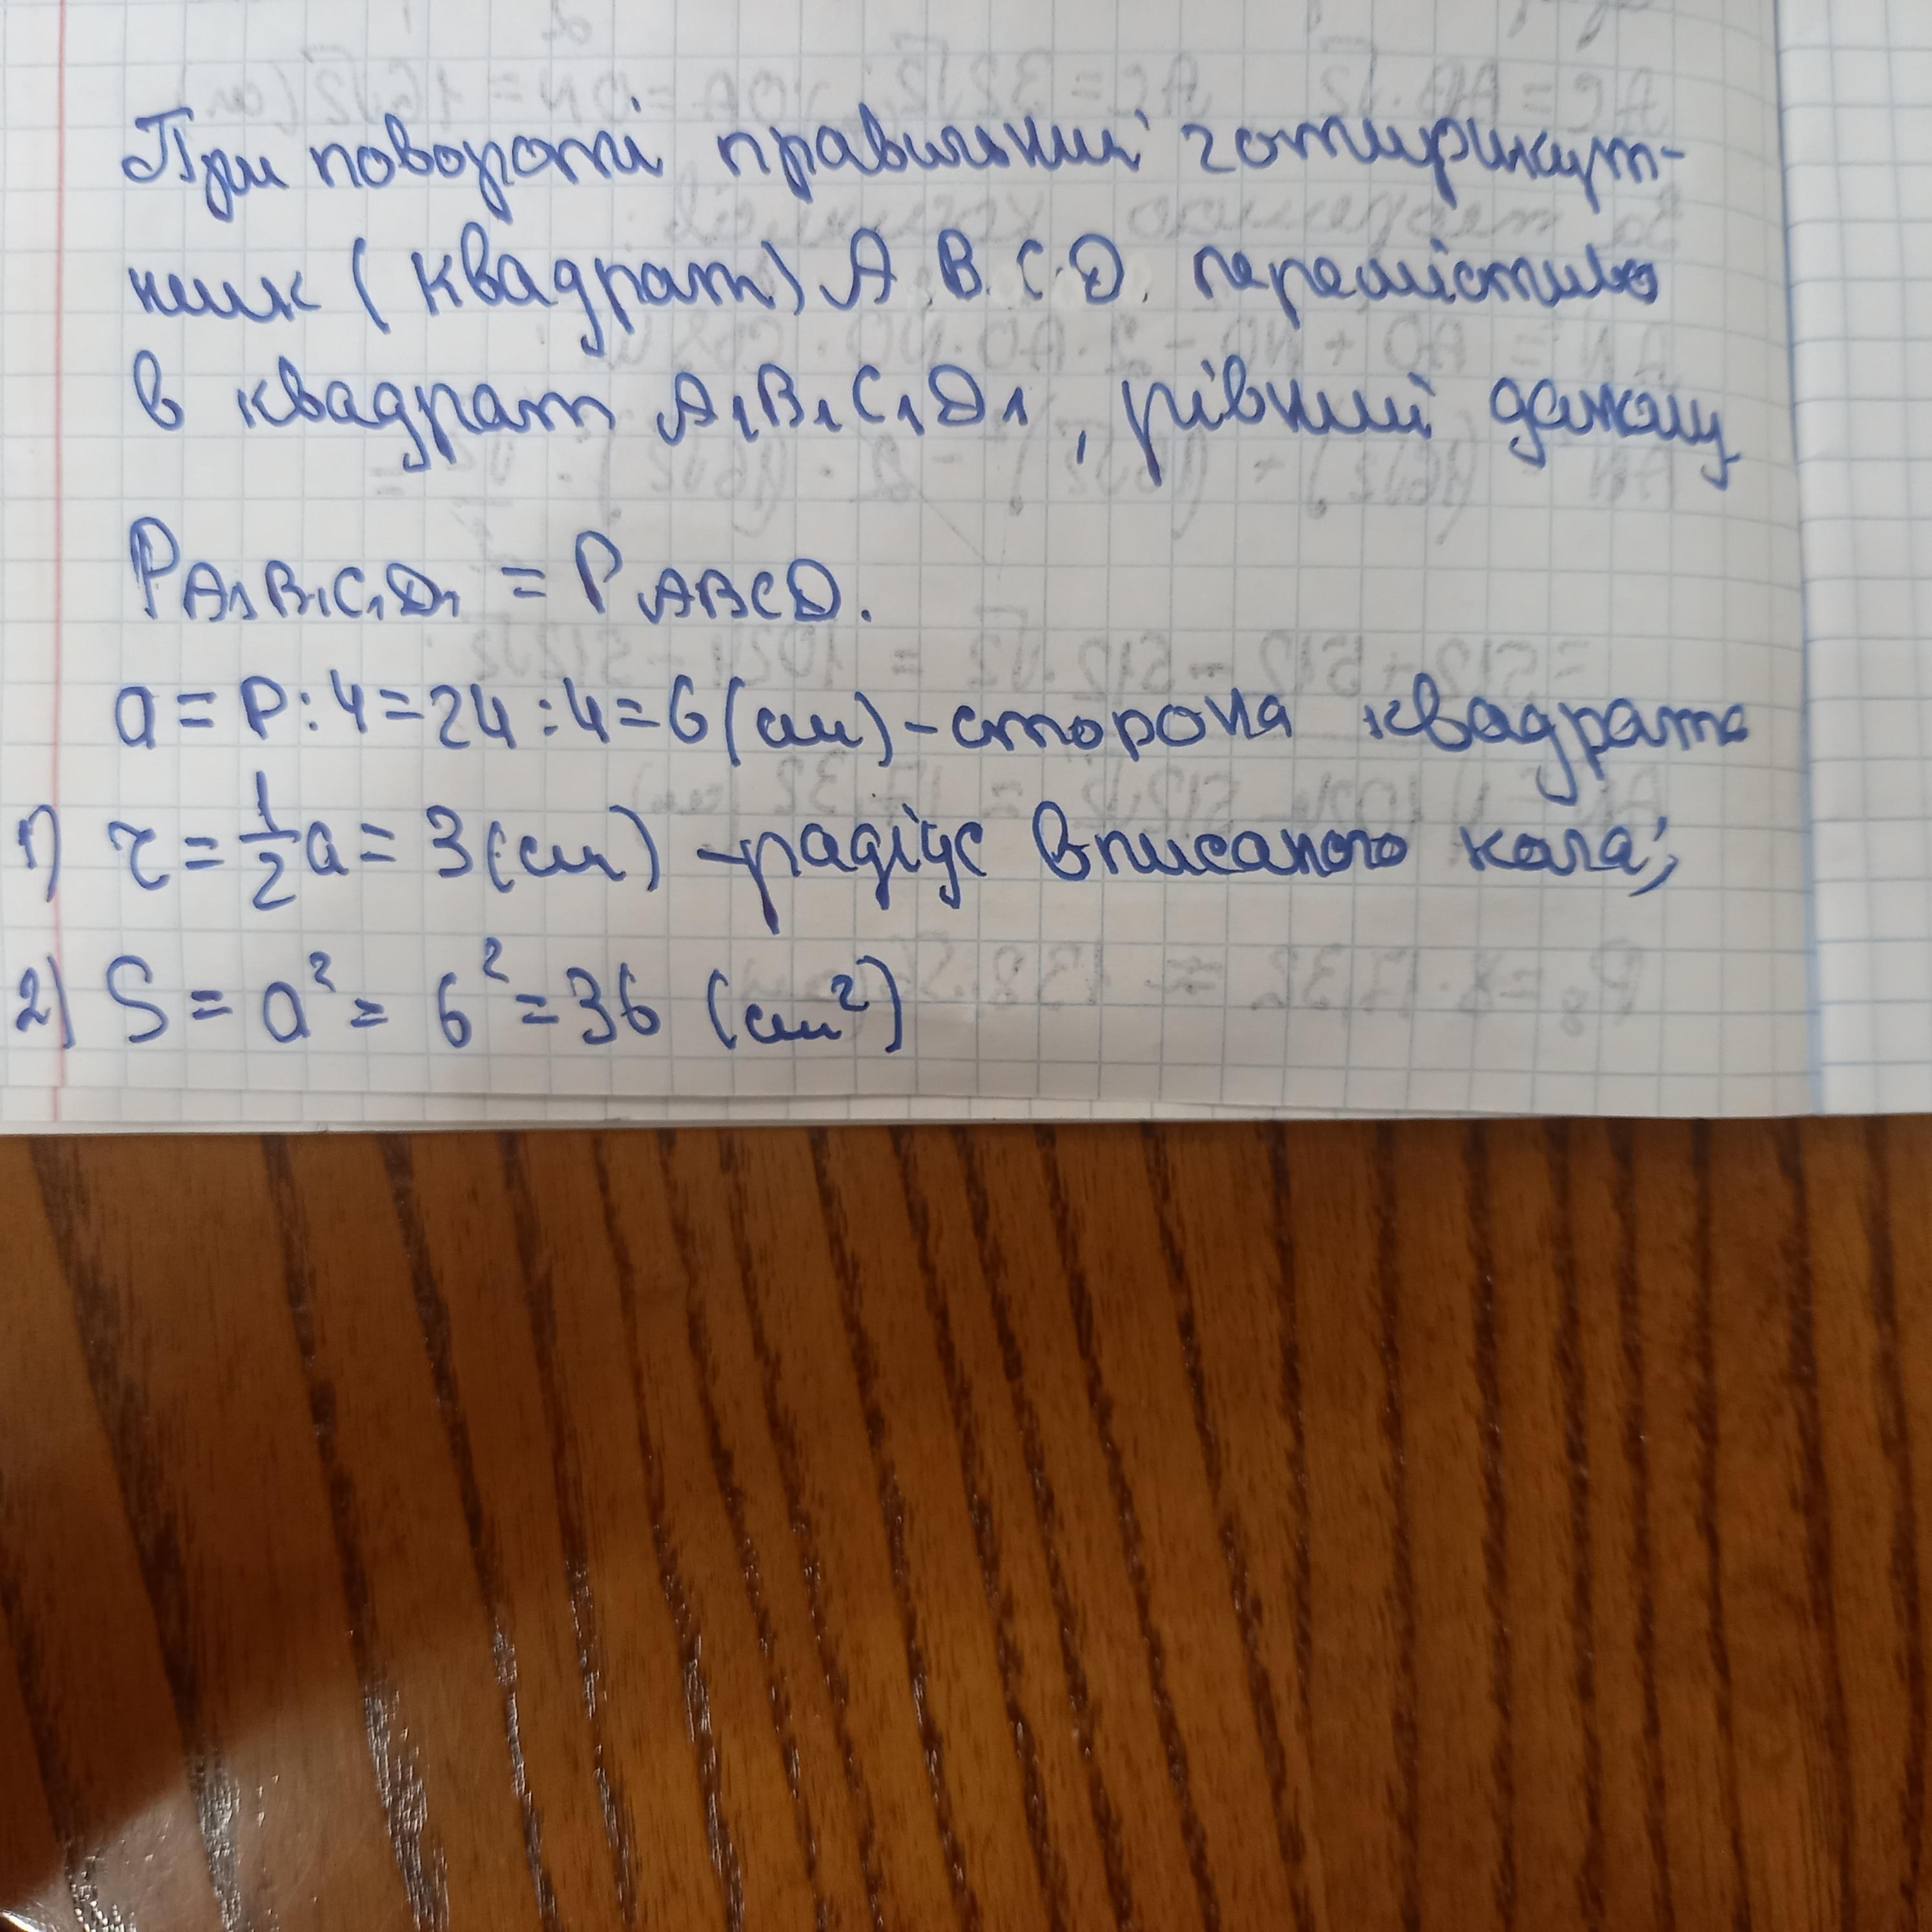 При повороті правильний чотирикут-
ник (квадрат) A.B.C.D. перемістився
в квадрат A₁B₁C₁D₁, рівний даному
P A₁B₁C₁D₁ = P ABCD.
a = P : 4 = 24 : 4 = 6 (см) - сторона квадрата
1) r = 1/2 a = 3 (см) - радіус вписаного кола;
2) S = a² = 6² = 36 (см²)